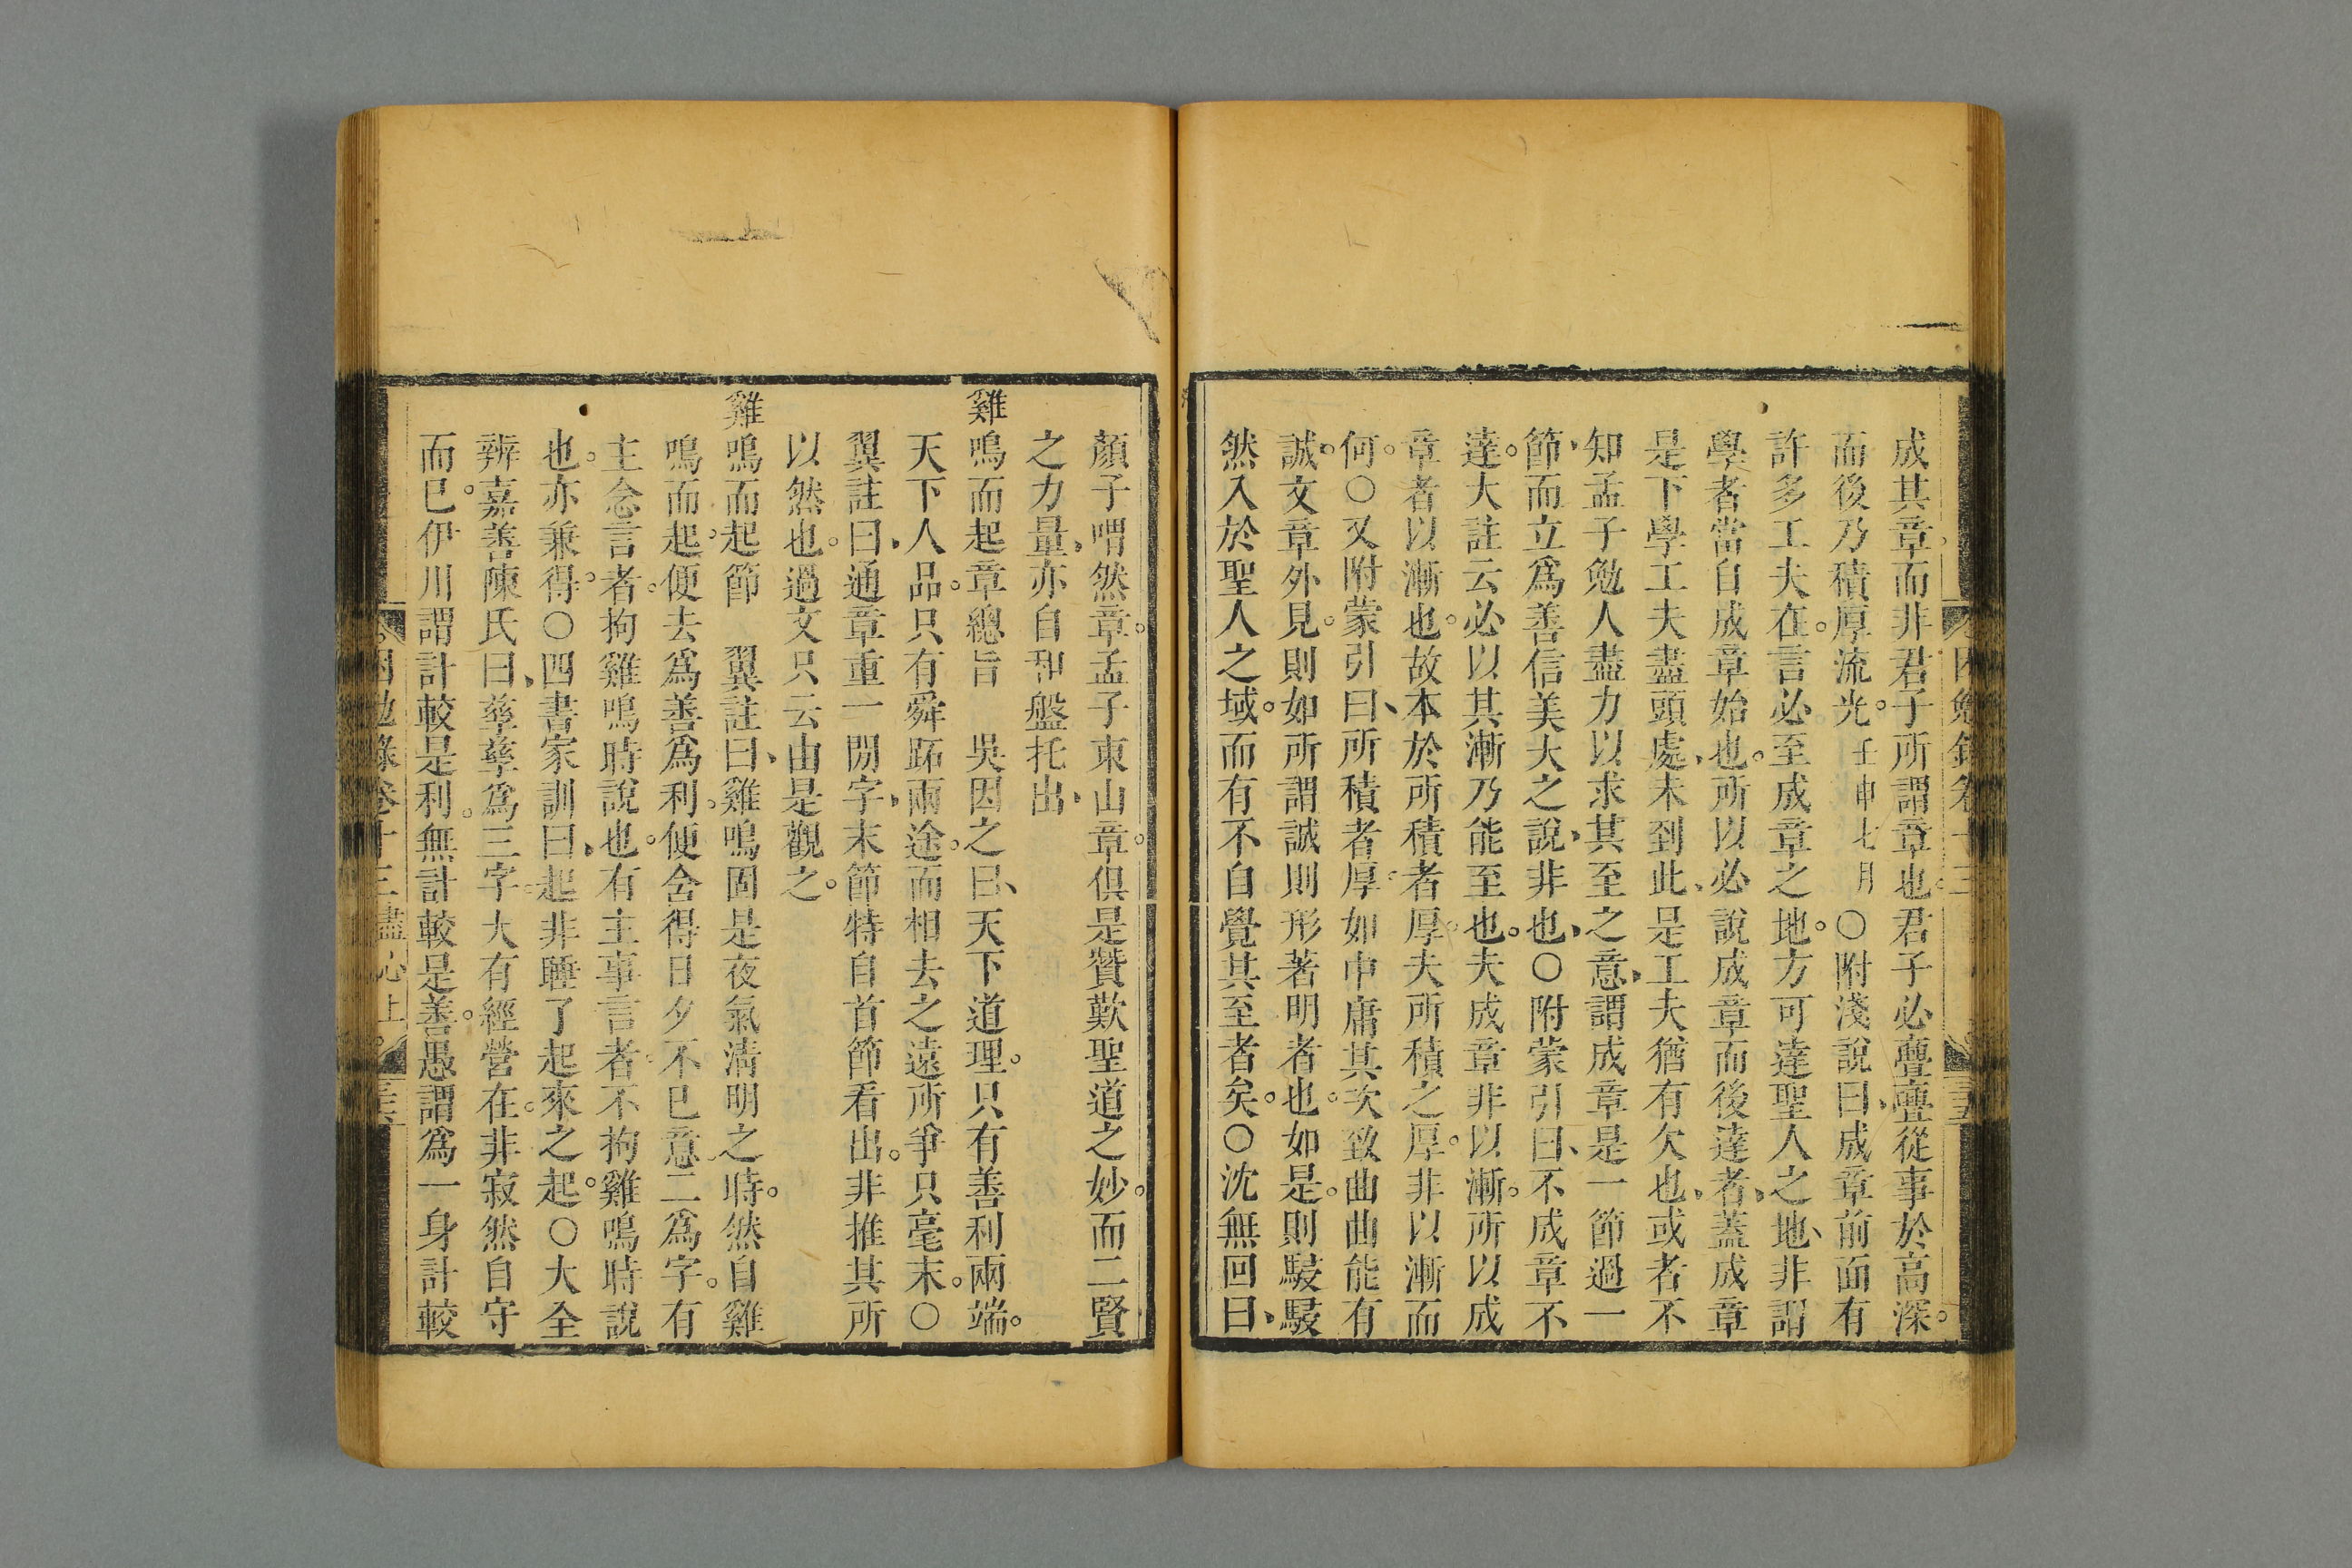 成其章而非君子所謂章也君子必亹亹從事於高深。
而後乃積厚流光。壬申七月○附淺說曰、成章前面有
許多工夫在。言必至成章之地。方可達聖人之地、非謂
學者當自成章始也。所以必說成章而後達者、蓋成章
是下學工夫盡頭處、未到此、是工夫猶有欠也、或者不
知孟子勉人盡力以求其至之意、謂成章是一節過一
節、而立為善信美大之說、非也、○附蒙引曰、不成章不
達。大註云必以其漸乃能至也。夫成章非以漸。所以成
章者以漸也。故本於所積者厚。夫所積之厚。非以漸而
何。○又附蒙引曰、所積者厚。如中庸其次致曲曲能有
誠。文章外見。則如所謂誠則形著明者也。如是。則駸駸
然入於聖人之域。而有不自覺其至者矣。○沈無回曰、
顏子喟然章。孟子東山章。俱是贊歎聖道之妙。而二賢
之力量、亦自和盤托出、
雞鳴而起章總旨　吳因之曰、天下道理。只有善利兩端。
天下人品。只有舜跖兩途。而相去之遠所爭只毫末。○
翼註曰、通章重一閒字、末節特自首節看出。非推其所
以然也。過文只云由是觀之。
雞鳴而起節　翼註曰、雞鳴固是夜氣清明之時。然自雞
鳴而起。便去為善為利。便含得日夕不已意二為字。有
主念言者。拘雞鳴時說也。有主事言者。不拘雞鳴時說
也。亦兼得。○四書家訓曰、起非睡了起來之起。○大全
辨嘉善陳氏曰、孳孳為三字。大有經營在。非寂然自守
而已。伊川謂計較是利。無計較是善。愚謂為一身計較
困勉錄卷十三盡心上